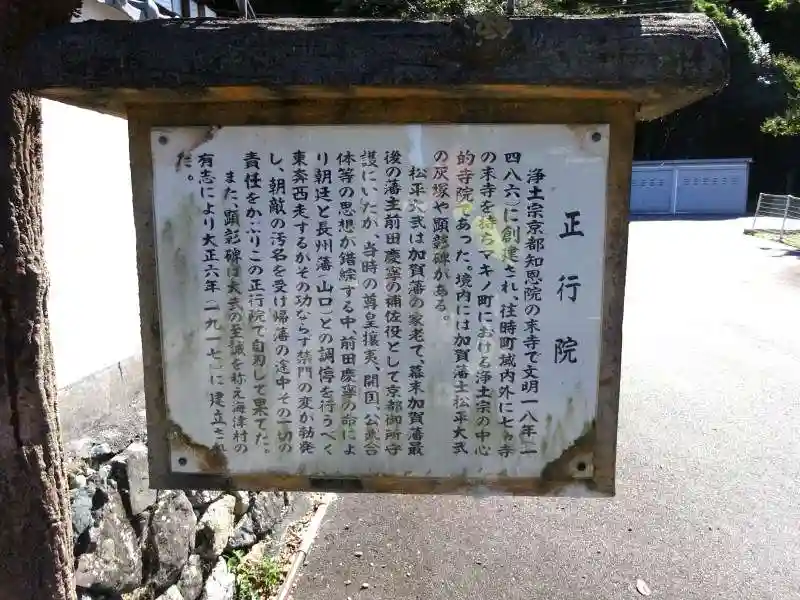 正行院
浄土宗京都知恩院の末寺で文明一八年（一
四八六）に創建され、往時町域内外に七ヶ寺
の末寺を持ちマキノ町における浄土宗の中心
的寺院であった。境内には加賀藩士松平大弐
の灰塚や顕彰碑がある。
松平大弐は加賀藩の家老で、幕末加賀藩最
後の藩主前田慶寧の補佐役として京都御所守
護にいたが、当時の尊皇攘夷、開国、公武合
体等の思想が錯綜する中、前田慶寧の命によ
り朝廷と長州藩（山口）との調停を行うべく
東奔西走するがその功ならず禁門の変が勃発
し、朝敵の汚名を受け帰藩の途中その一切の
責任をかぶりこの正行院で自刃して果てた。
また、顕彰碑は大弐の至誠を称え海津村の
有志により大正六年（一九一七）に建立され
た。